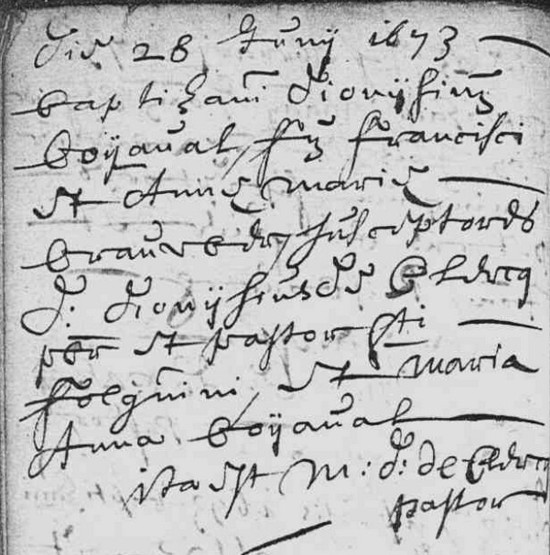 die 28 Junij 1673
baptizavi Dionijsium
boijaval, fm francisci
et Annæ mariæ
susceptores
d: dionijsius de Clercq
pbr et pastor sti
folquini, et maria
Anna boijaval
ita est M: d: de Clercq
pastor